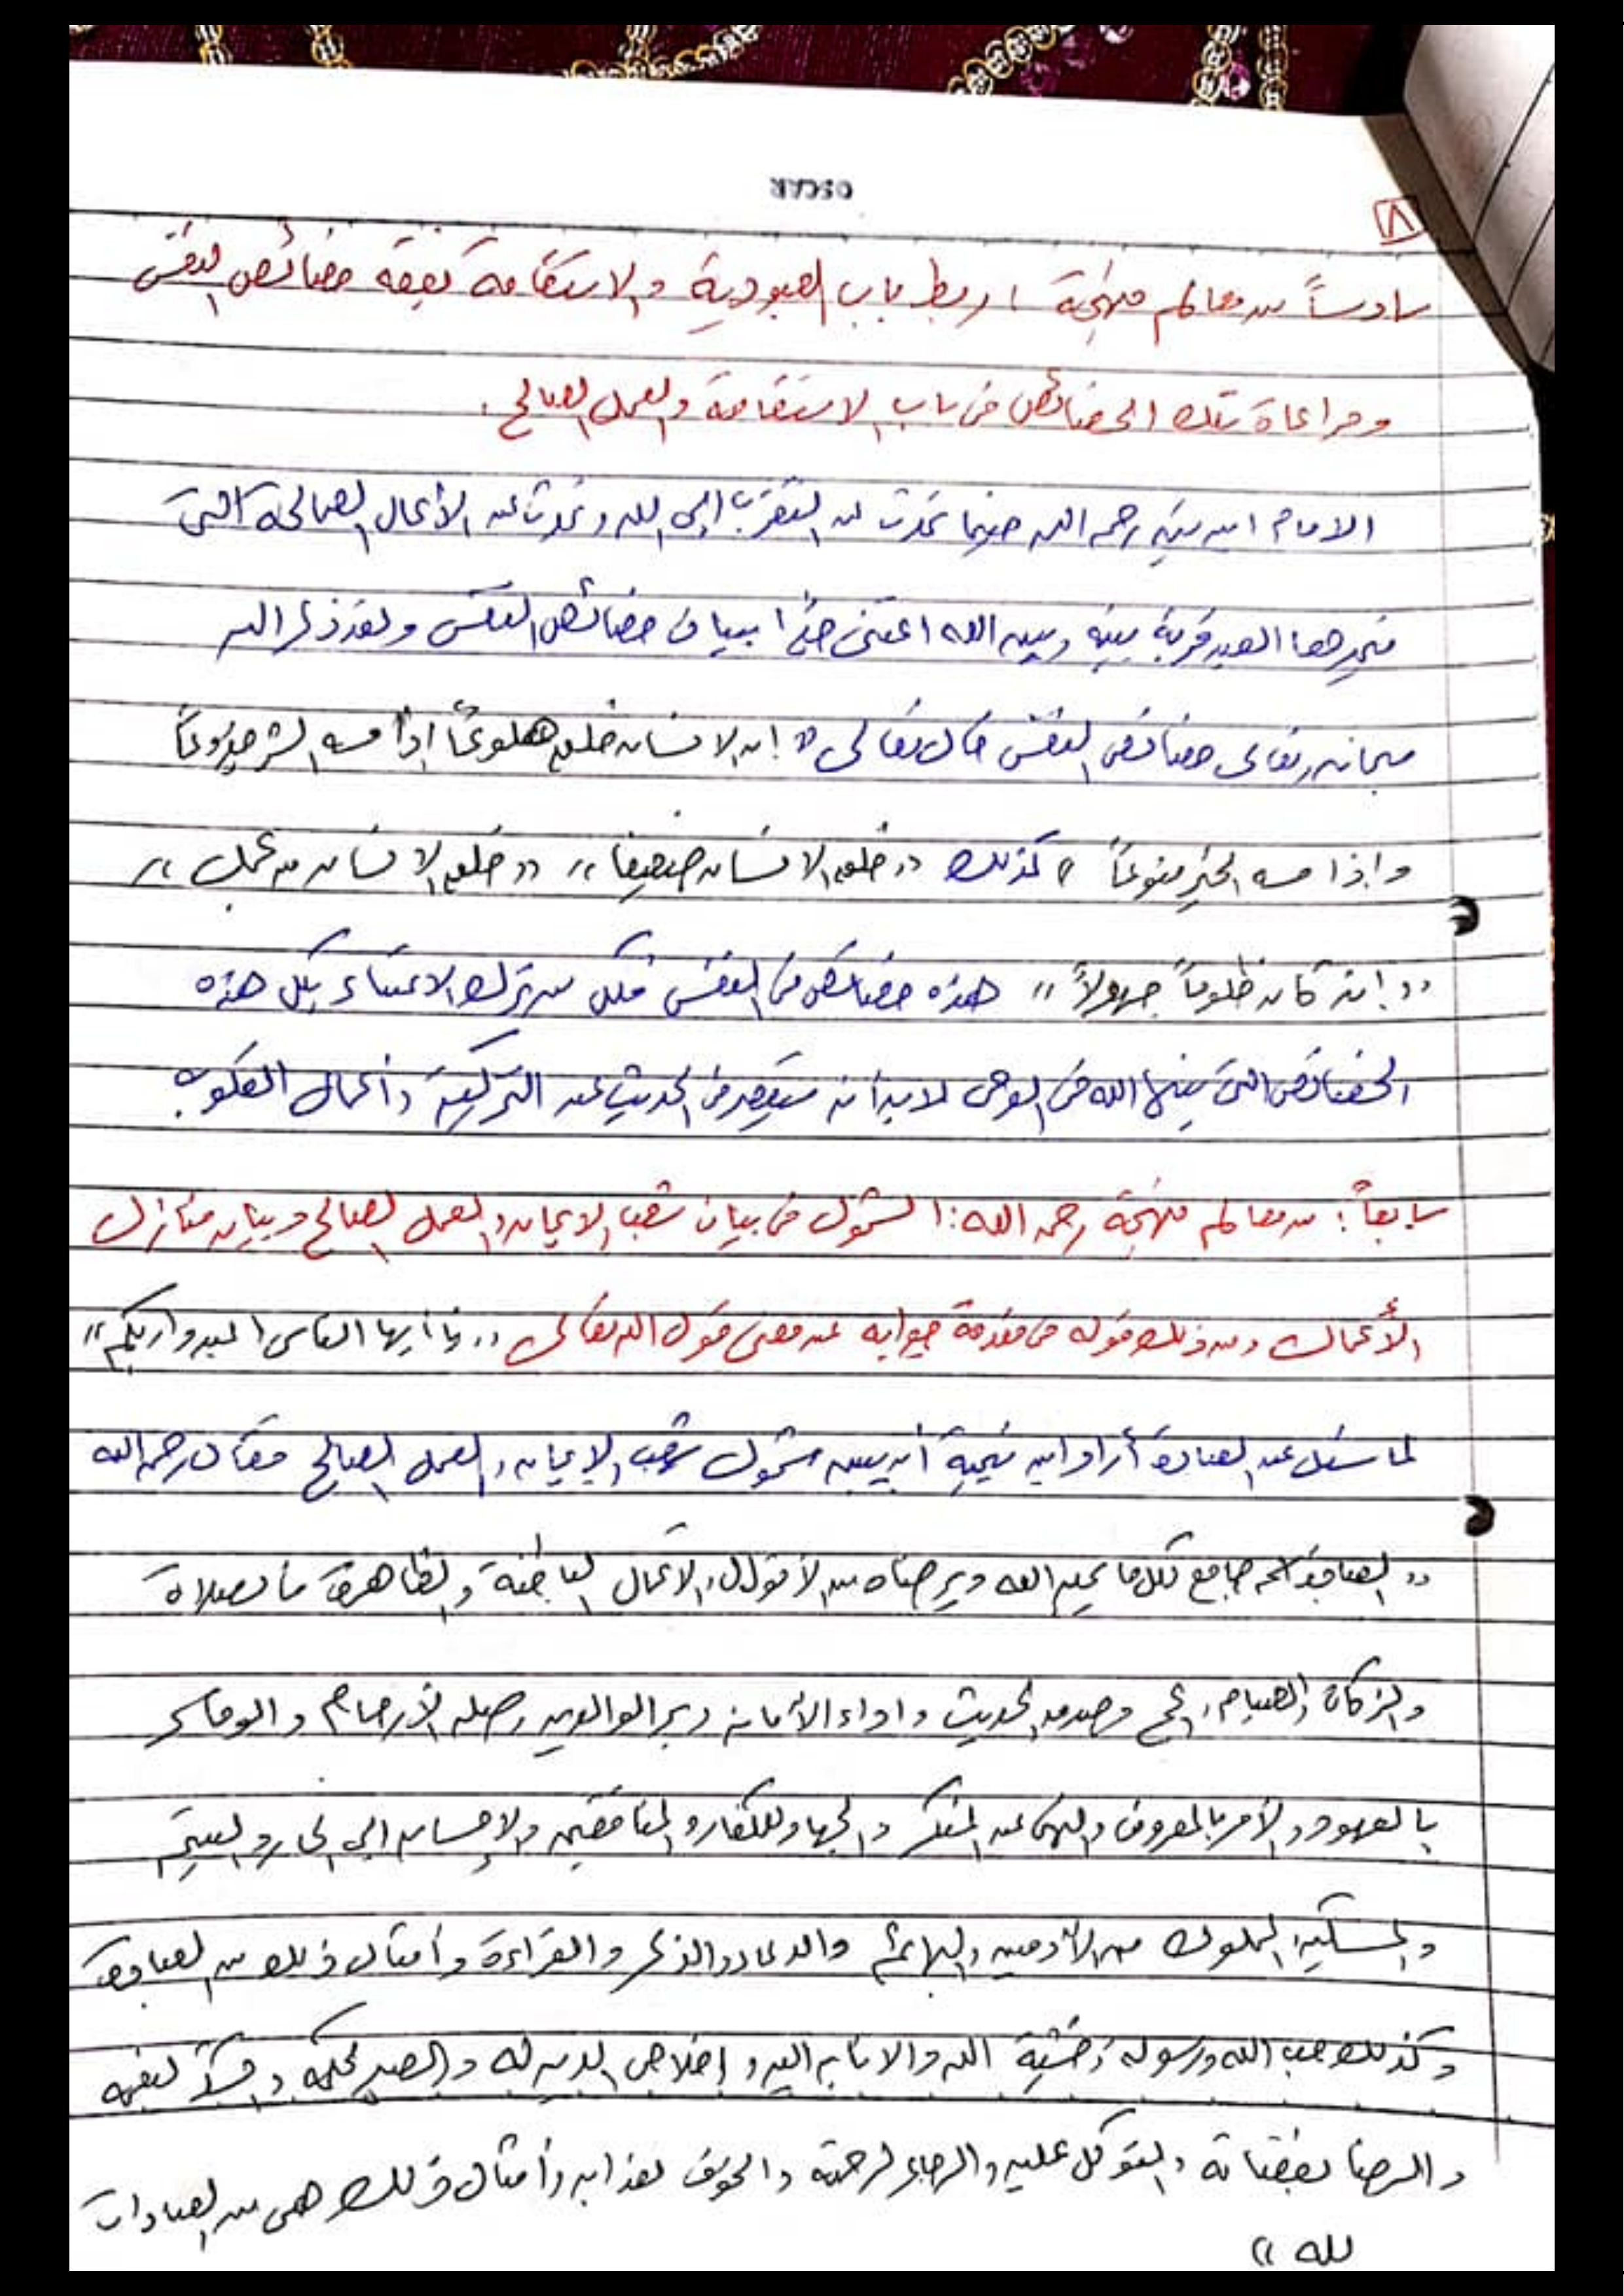 OSCAR
٨
سادساً من معالم منهجية: ربط باب العبودية والاستقامة بفقه خصائص النفس
ومراعاة تلك الخصائص في باب الاستقامة والعمل الصالح.
الامام ابن تيمية رحمه الله حينما تحدث عن التقرب الى الله وتحدث عن الأعمال الصالحة التي
العبد قربة بينه وبين الله اعتنى جداً ببيان خصائص النفس ولقد ذكر الله
سبحانه وتعالى خصائص النفس قال تعالى " إن الانسان خلق هلوعاً اذا مسه الشر جزوعاً
واذا مسه الخير منوعاً " كذلك "خلق الانسان ضعيفا" "خلق الانسان من عجل"
"إنه كان ظلوماً جهولاً" هذه خصائص في النفس فكل من ترك الاعتناء بكل هذه
الخصائص التي بينها الله في الوحي لابد أنه سيقصر في الحديث عن التزكية وأعمال القلوب
سابعاً: من معالم منهجية رحمه الله: الشمول في بيان شعب الايمان والعمل الصالح وبيان منازل
الأعمال ومن ذلك قوله في مقدمة جوابه عن معنى قول الله تعالى "يا أيها الناس اعبدوا ربكم"
لما سئل عن العبادة أراد ابن تيمية أن يبين شمول شعب الإيمان والعمل الصالح فقال رحمه الله
"العبادة اسم جامع لكل ما يحبه الله ويرضاه من الأقوال والأعمال الباطنة والظاهرة فالصلاة
والزكاة والصيام والحج وصدق الحديث واداء الأمانة وبر الوالدين وصله الأرحام والوفاء
بالعهود والأمر بالمعروف والنهي عن المنكر والجهاد للكفار والمنافقين والإحسان الى الجار واليتيم
والمسكين والمملوك من الآدميين والبهائم والدعاء والذكر والقراءة وأمثال ذلك من العبادة
وكذلك حب الله ورسوله وخشية الله والانابه اليه وإخلاص الدين له والصبر لحكمه والشكر لنعمه
والرضا بقضائه والتوكل عليه والرجاء لرحمته والخوف لعذابه وأمثال ذلك هي من العبادات
لله"